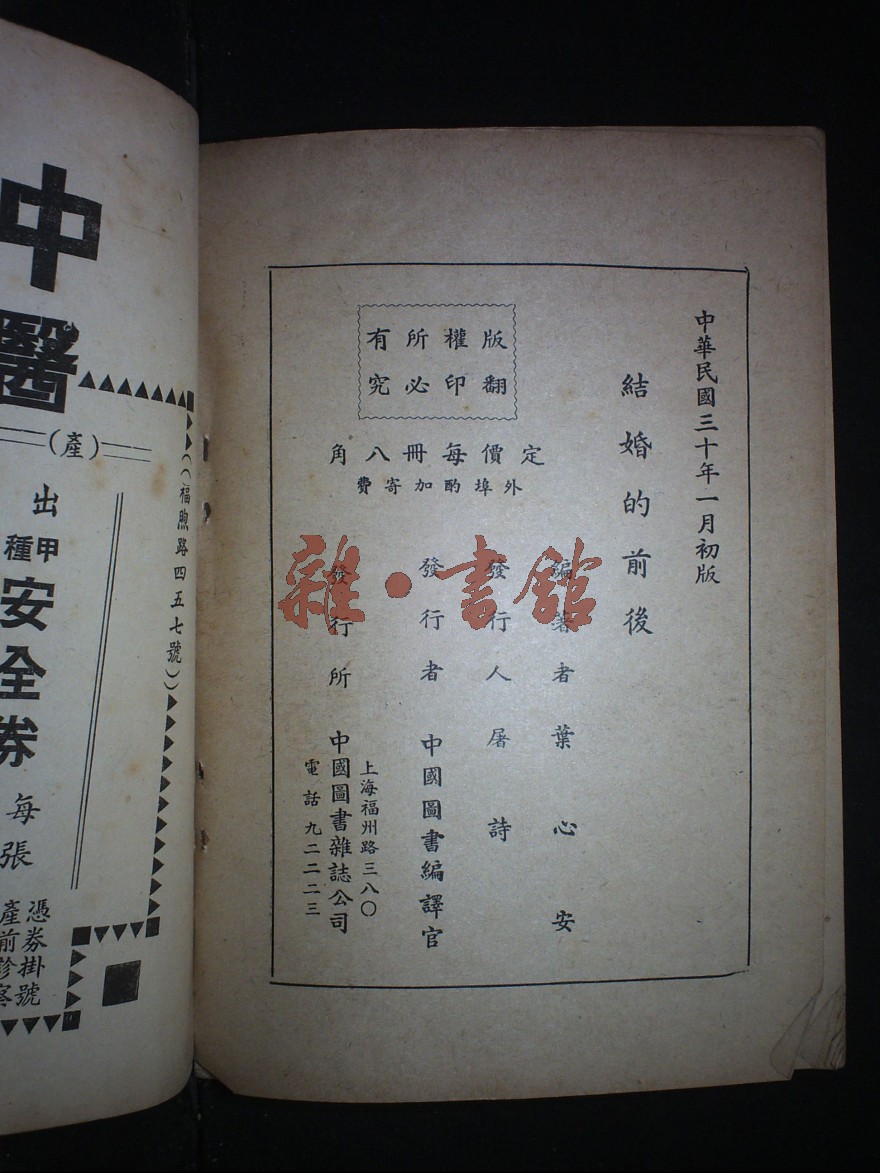 中華民國三十年一月初版
結婚的前後
編著者葉心安
發行人屠詩
發行者 中國圖書編譯官
發行所 中國圖書雜誌公司
上海福州路三八〇
電話九二二二三
版權所有
翻印必究
定價每冊八角
外埠酌加寄費
雜·書館
中醫
(產)
((福煦路四五七號))
出
甲種
安全券
每張
憑券掛號
產前診察